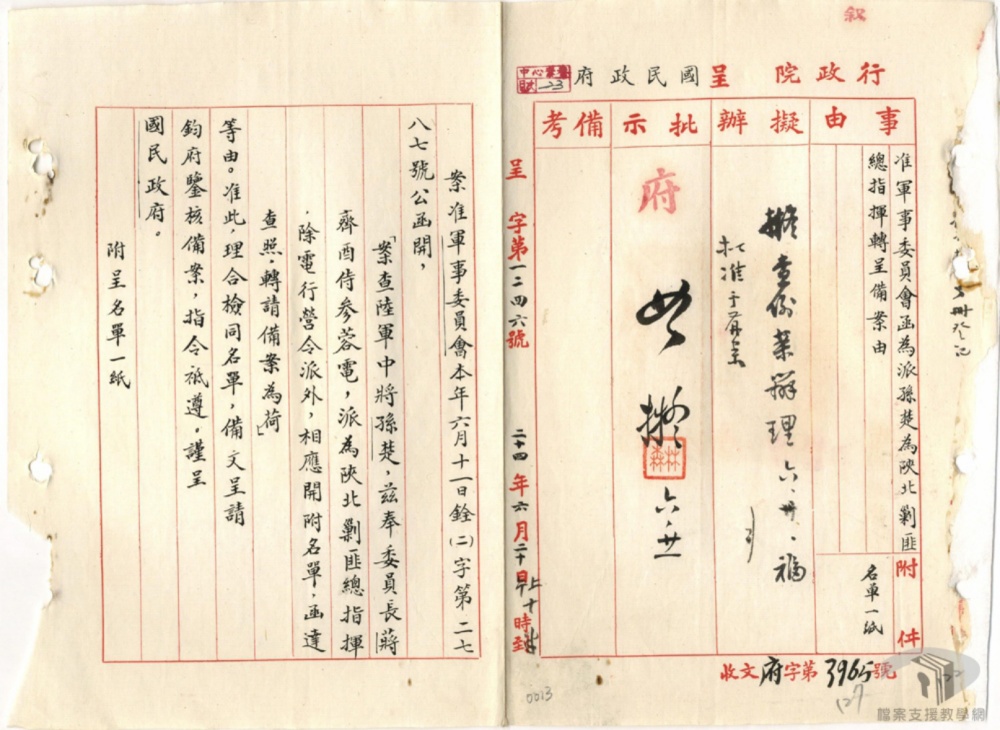 敘
行政院 呈 國民政府
事由
擬辦
批示
備考
准軍事委員會函為派孫楚為陝北剿匪
總指揮轉呈備案由
附件
名單一紙
擬查例案辦理 六、廿、福
批准予備案
府
如擬
六、廿一
呈 字第一二四六號
二十四年六月二十日上午十時到
收文府字第3965號
案准軍事委員會本年六月十一日銓(二)字第二七
八七號公函開，
「案查陸軍中將孫楚，茲奉委員長蔣
齊酉侍參蓉電，派為陝北剿匪總指揮
，除電行營令派外，相應開附名單，函達
查照，轉請備案為荷」
等由。准此，理合檢同名單，備文呈請
鈞府鑒核備案，指令祗遵。謹呈
國民政府。
附呈名單一紙
0013
127
檔案支援教學網